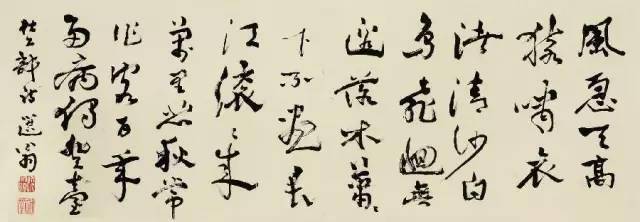 風急天高
猿嘯哀
渚清沙白
鳥飛迴無
邊落木蕭〻
下不盡長
江滚〻来
萬里悲秋常
作客百年
多病獨登臺
杜工部詩 翁